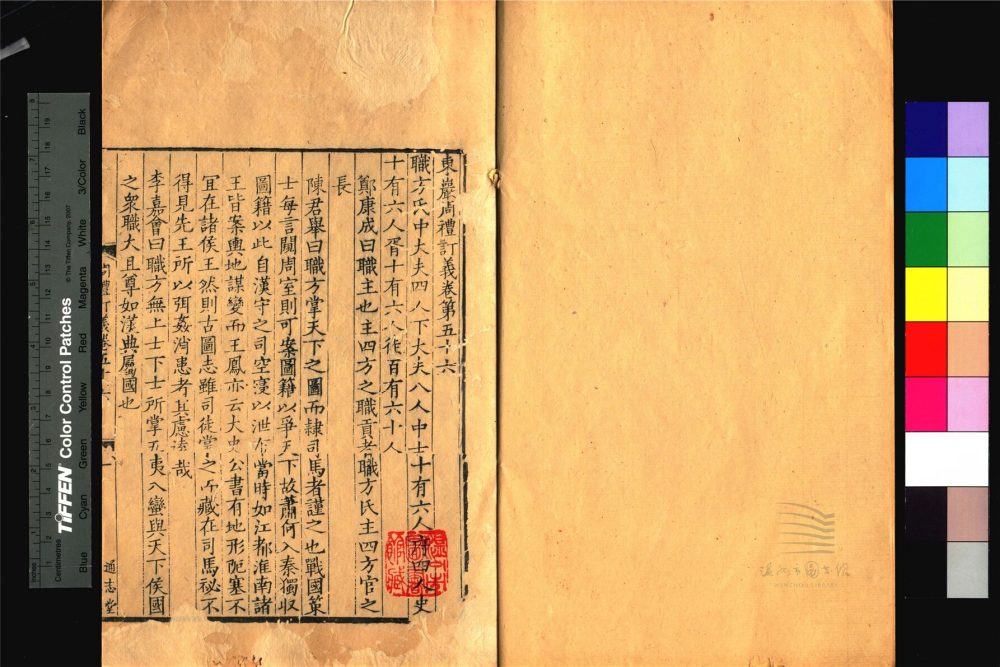 東巖周禮訂義卷第五十六
職方氏中大夫四人下大夫八人中士十有六人府四人史
十有六人胥十有六人徒百有六十人
鄭康成曰職主也主四方之職貢者職方氏主四方官之
長
陳君舉曰職方掌天下之圖而隸司馬者謹之也戰國策
士每言闚周室則可案圖籍以爭天下故蕭何入秦獨収
圖籍以此自漢守之司空寖以泄布當時如江都淮南諸
王皆案輿地謀變而王鳳亦云太史公書有地形阨塞不
宜在諸侯王然則古圖志雖司徒掌之而藏在司馬祕不
得見先王所以弭姦消患者其慮遠哉
李嘉會曰職方無上士下士所掌五夷八蠻與天下侯國
之衆職大且尊如漢典屬國也
周禮訂義卷五十六
一
通志堂
溫州市圖書館
WENZHOU LIBRARY
TIFFEN Color Control Patches
© The Tiffen Company, 2007
Inches
Centimetres
Blue
Cyan
Green
Yellow
Red
Magenta
White
3/Color
Black